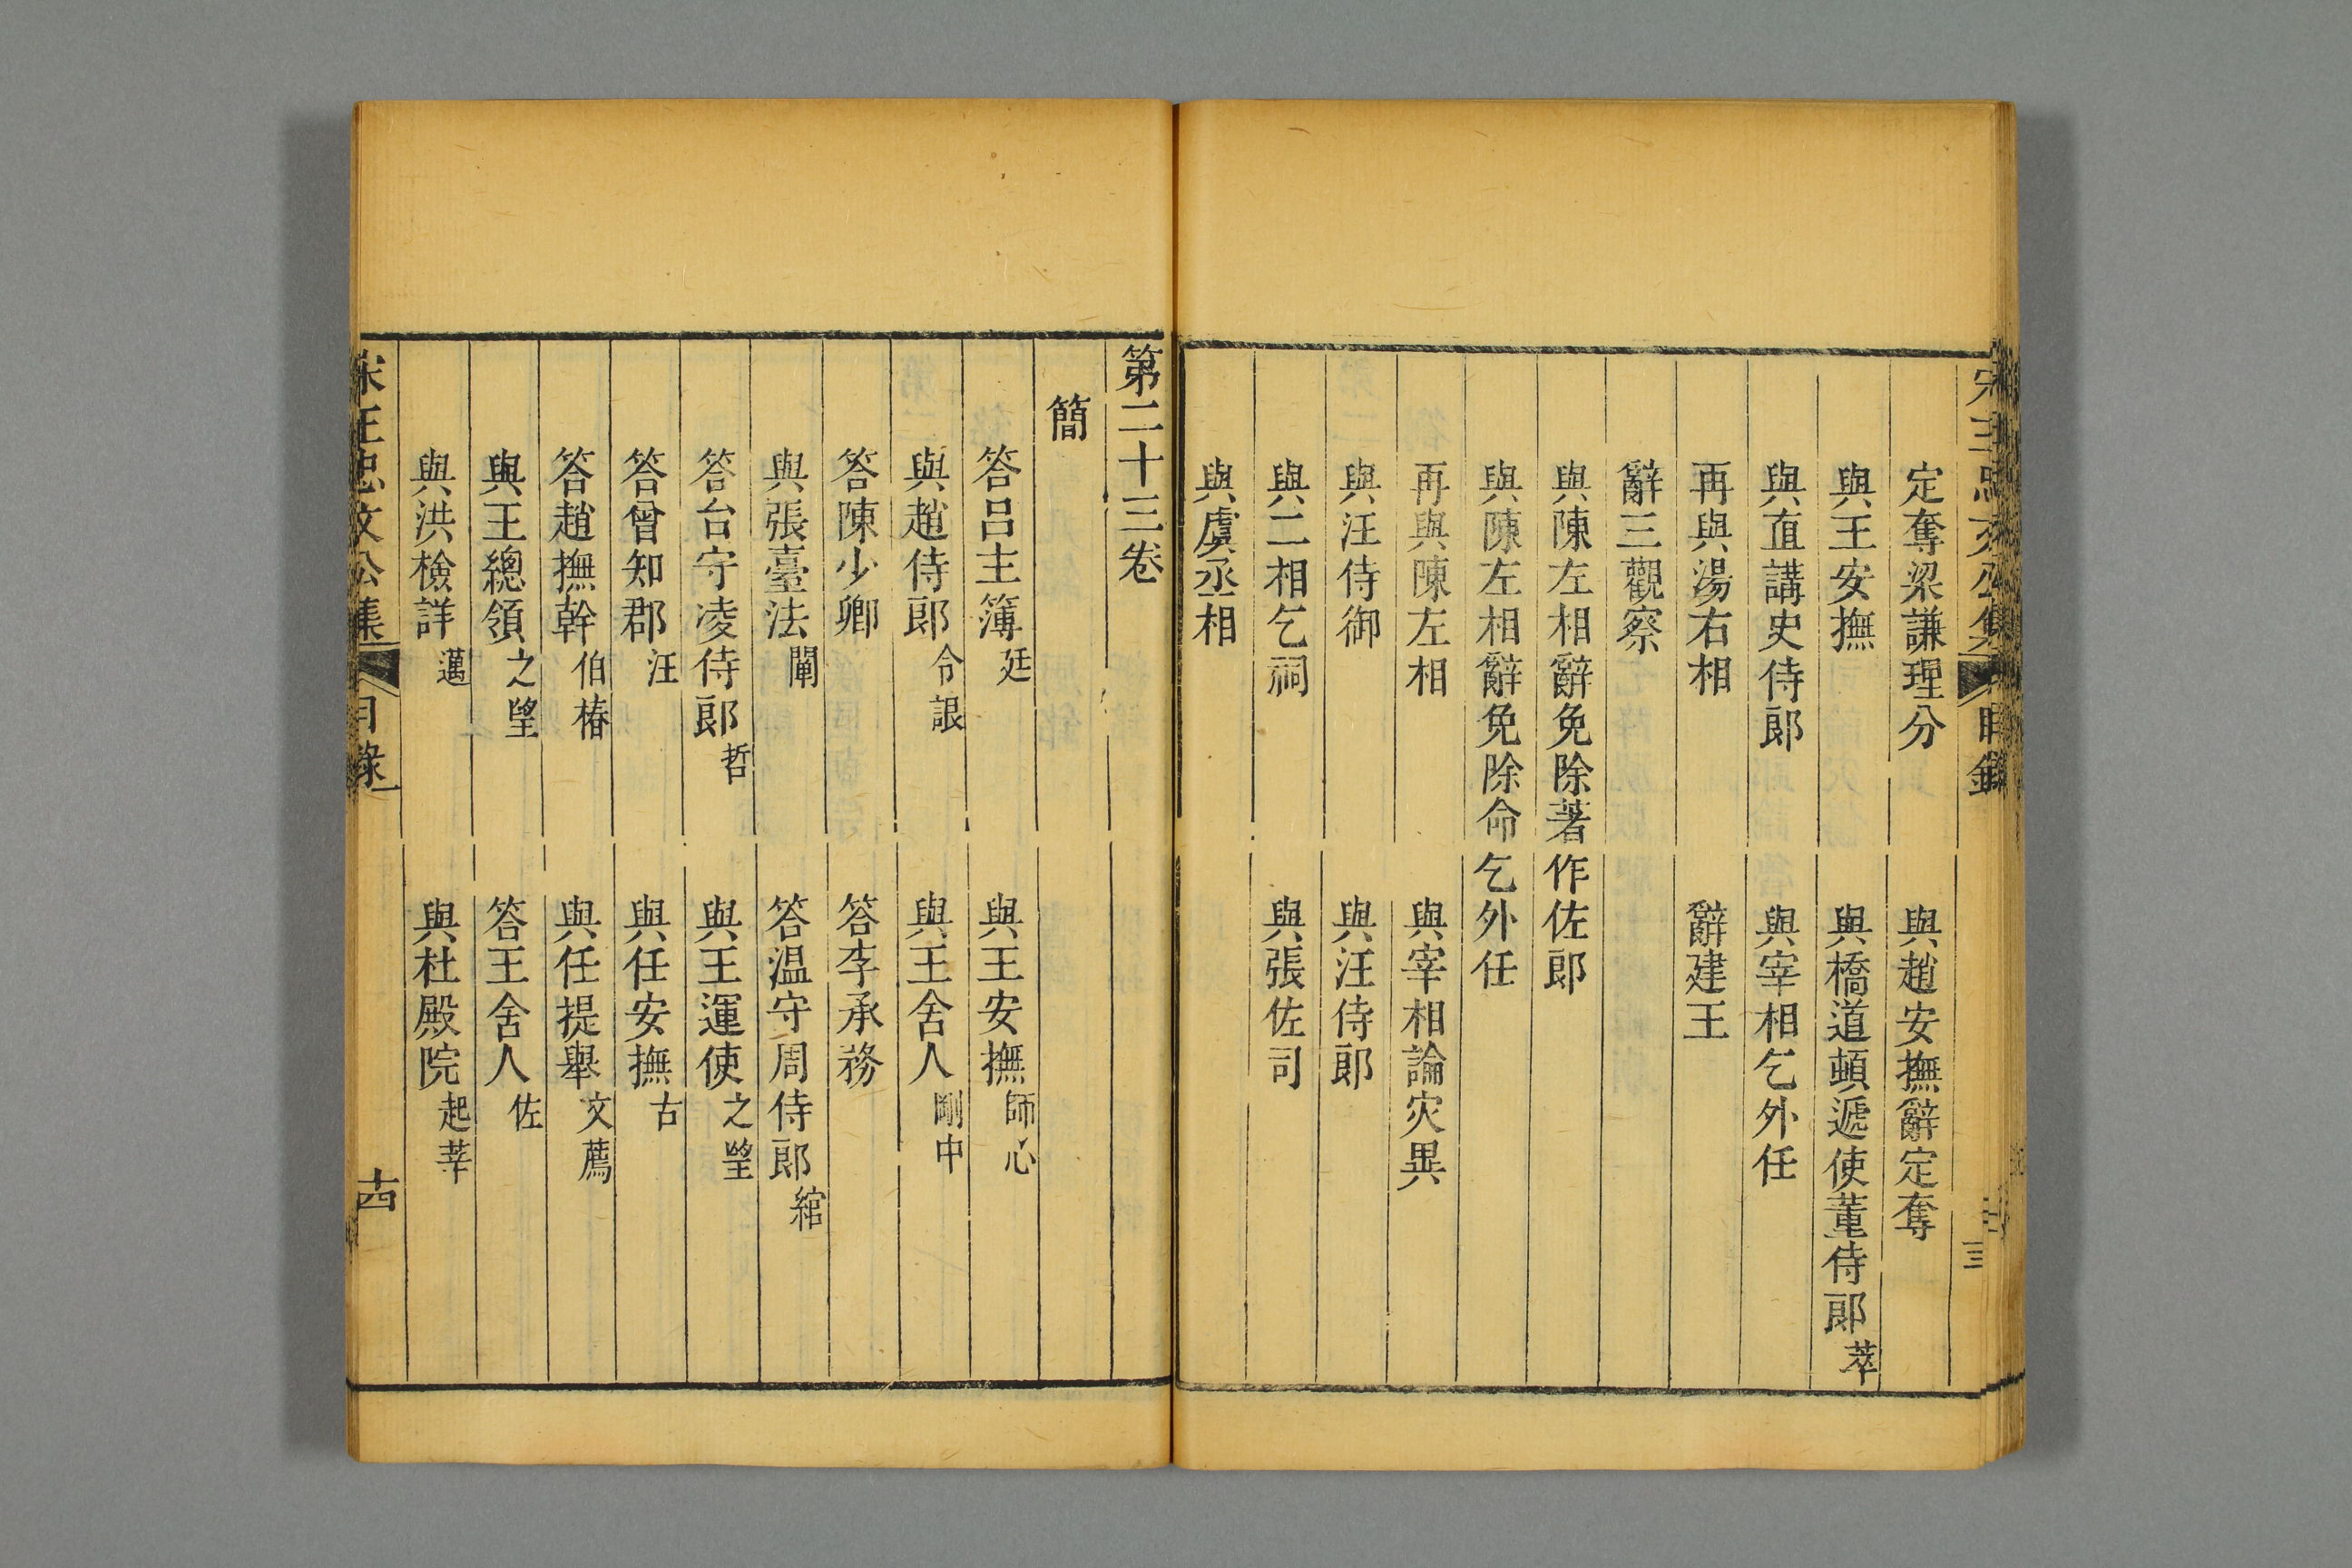 定奪梁謙理分 與趙安撫辭定奪
與王安撫 與橋道頓遞使董侍郎 苹
與直講史侍郎 與宰相乞外任
再與湯右相 辭建王
辭三觀察
與陳左相辭免除著作佐郎
與陳左相辭免除命乞外任
再與陳左相 與宰相論灾異
與汪侍御 與汪侍郎
與二相乞祠 與張佐司
與虞丞相
第二十三卷
簡
答呂主簿 廷 與王安撫 師心
與趙侍郎 令詪 與王舍人 剛中
答陳少卿 答李承務
與張臺法 闡 答温守周侍郎 綰
答台守凌侍郎 哲 與王運使 之望
答曾知郡 汪 與任安撫 古
答趙撫幹 伯椿 與任提舉 文薦
與王總領 之望 答王舍人 佐
與洪檢詳 邁 與杜殿院 起莘
宋王忠文公集 目錄 十四